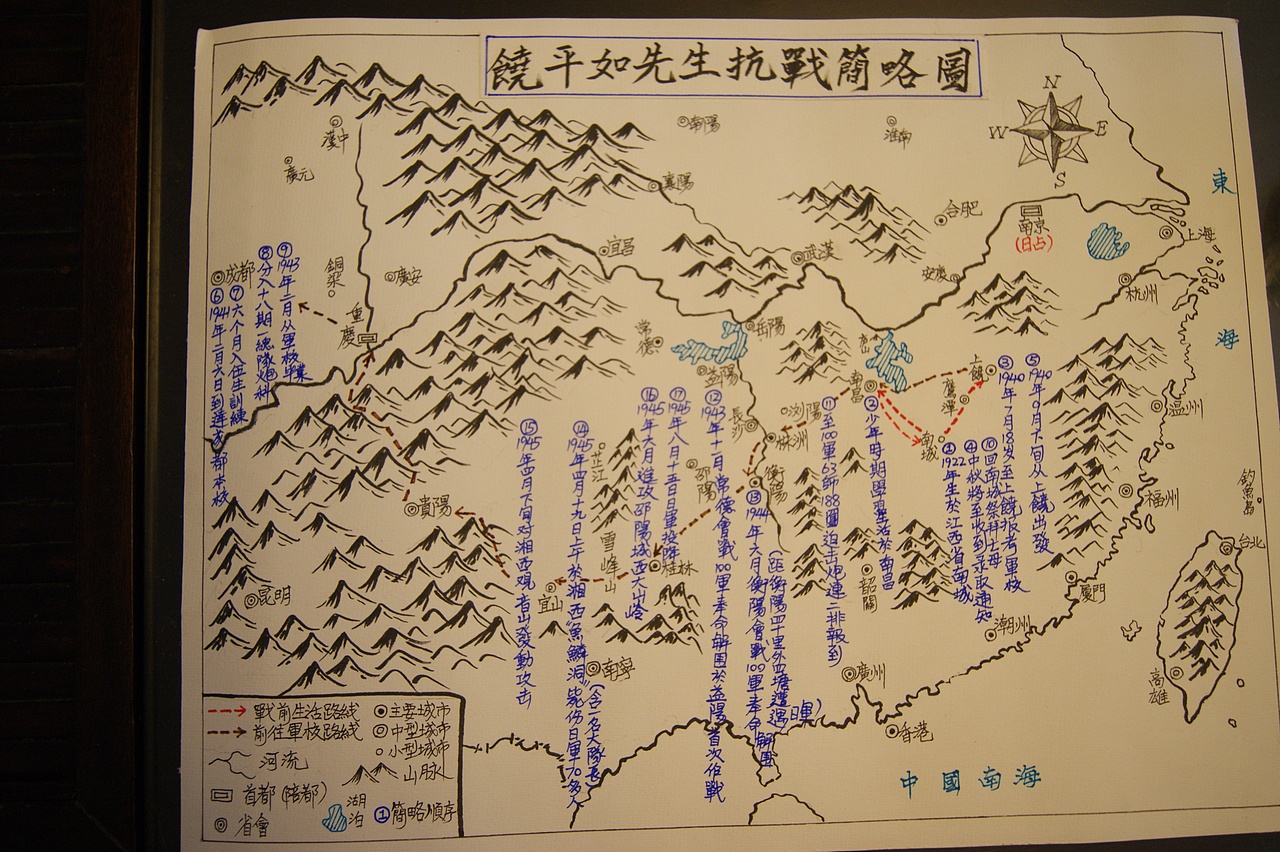 饒平如先生抗戰簡略圖
N
W
E
S
漢中
廣元
南陽
淮南
襄陽
合肥
南京
(日占)
東
海
上海
成都
銅梁
廣安
宜昌
武漢
安慶
杭州
重慶
常德
岳陽
益陽
長沙
浏陽
株洲
南昌
上饒
鷹潭
南城
温州
福州
釣魚島
台北
高雄
廈門
潮州
貴陽
昆明
芷江
雪峰山
邵陽
衡陽
桂林
宜山
南宁
韶關
廣州
香港
中國南海
⑨1943年二月从軍校畢業
⑧分入十八期一總隊炮科
⑦六个月入伍生訓練
⑥1941年二月六日到達成都本校
⑮1945年四月下旬对湘西观音山發動攻击
⑭1945年四月十九日上午於湘西"魚鱗洞"毙伤日軍70多人
(含一名大隊長)
⑯1945年六月進攻邵陽城西大山岭
⑰1945年八月十五日日軍投降
⑫1943年十一月常德會戰100軍奉命解围於益陽首次作戰
⑬1944年六月衡陽會戰100軍奉命解围
(距衡陽四十里外血塘遭遇
戰)
⑪至100軍63師188團迫击炮連二排報到
②少年時期學習生活於南昌
①1922年生於江西省南城
④中秋將至收到录取通知
⑩回南城祭拜亡母
③1940年7月18岁至上饒报考軍校
⑤1940年9月下旬从上饒出發
戰前生活路线
前往軍校路线
河流
首都(陪都)
省會
主要城市
中型城市
小型城市
山脉
湖泊
①簡略順序